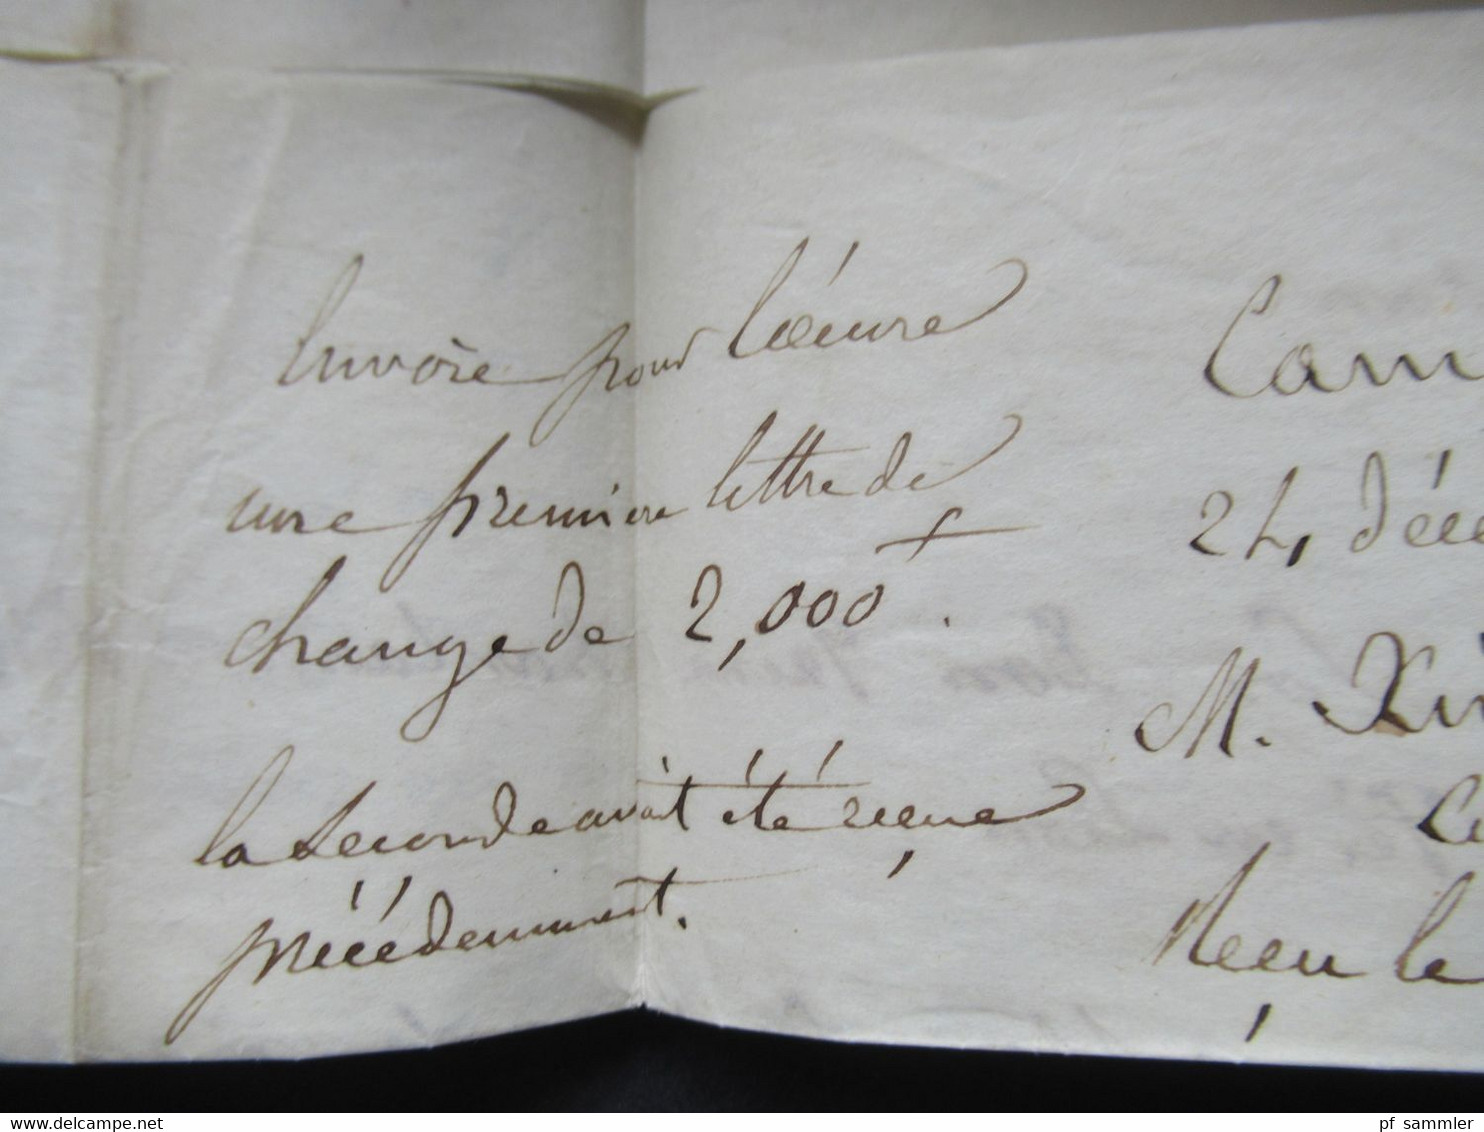 Envoie pour l'œuvre
une première lettre de
change de 2,000 f.
la seconde avait été reçue
précédemment.
24, déce
M.
Reçu le
www.delcampe.net
pf_sammler